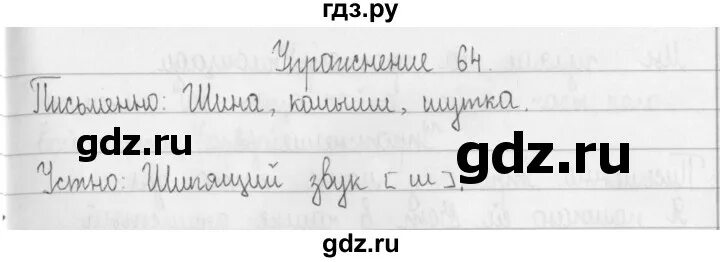 гдз.ру
Упражнение 64.
Письменно: Шина, камыши, шутка.
gdz.ru gdz.ru
Устно: Шипящий звук [ш].
gdz.ru